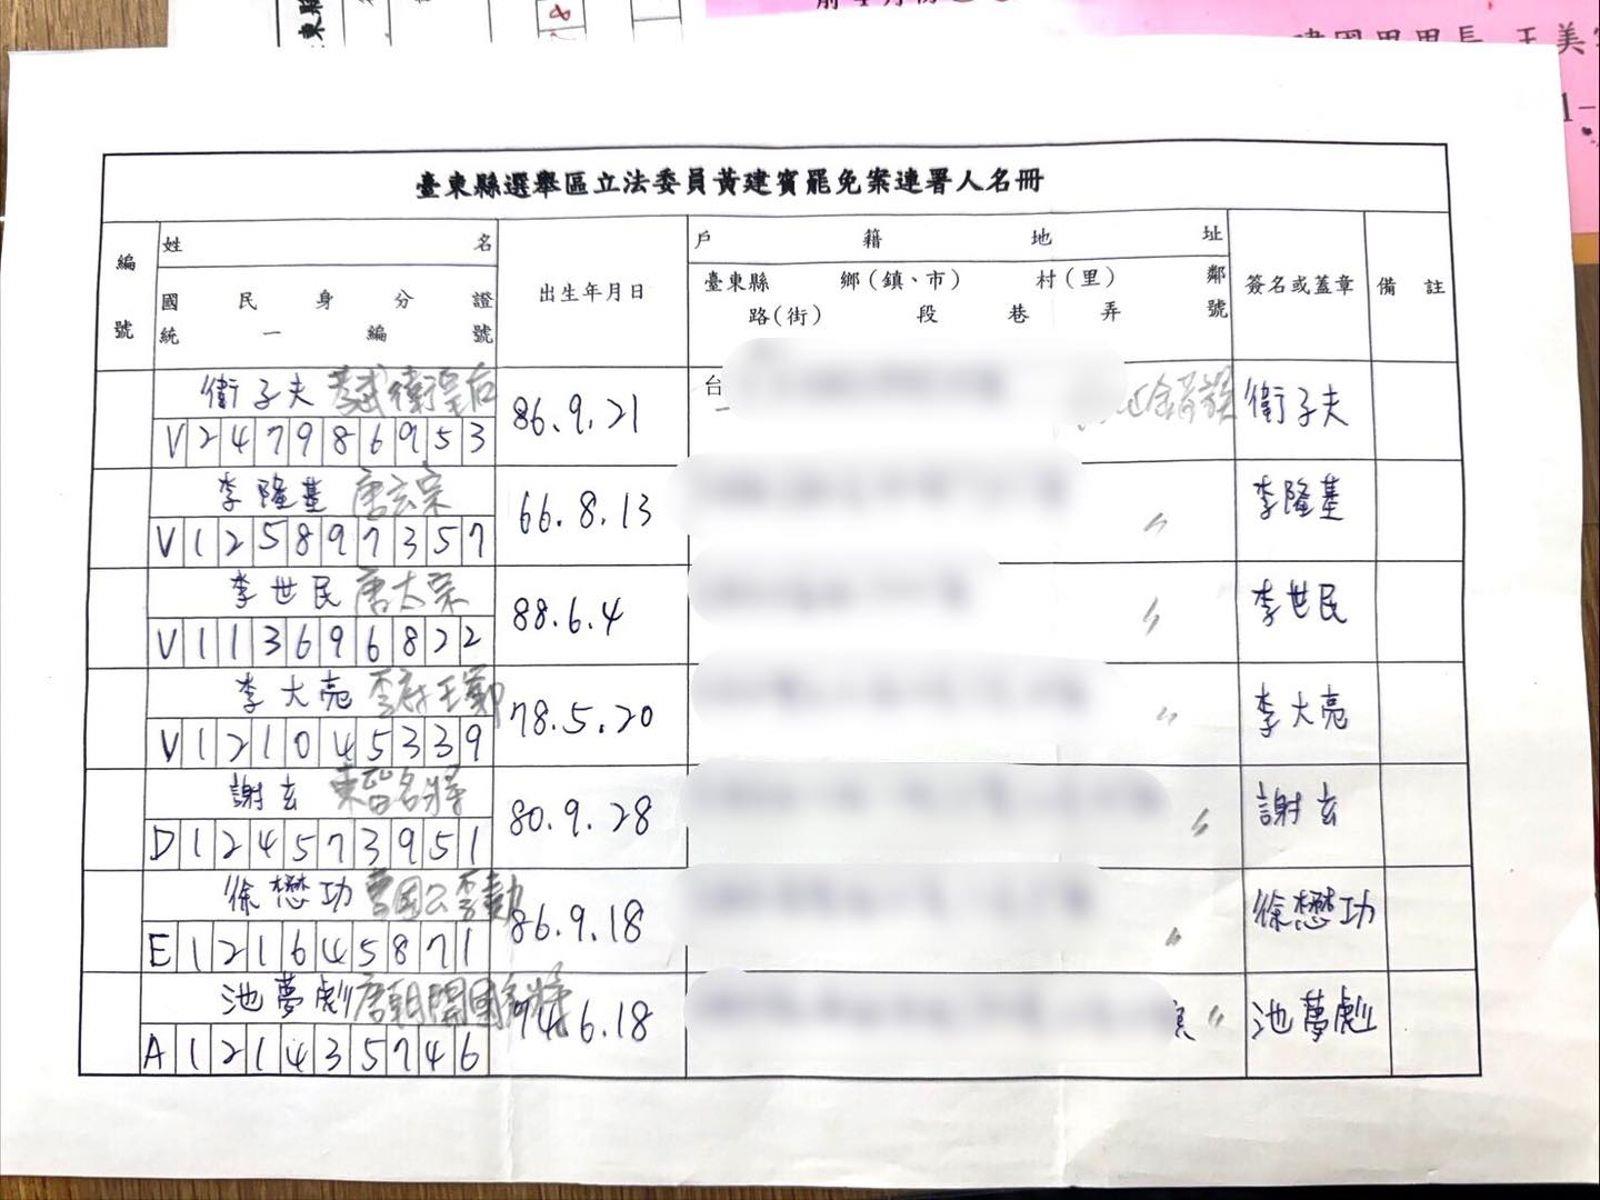 建國里里長 王美
臺東縣選舉區立法委員黃建賓罷免案連署人名冊
編號
姓名
國民身分證
統一編號
出生年月日
戶籍地址
臺東縣 鄉(鎮、市) 村(里) 鄰
路(街) 段 巷 弄 號
簽名或蓋章
備註
衛子夫 孝武衛皇后
V247986953
86.9.21
台
衛子夫
李隆基 唐玄宗
V125897357
66.8.13
〃
李隆基
李世民 唐太宗
V113696822
88.6.4
〃
李世民
李大亮
V121045339
78.5.20
〃
李大亮
謝玄 東晉名將
D124573951
80.9.28
〃
謝玄
徐懋功 曹國公李勣
E121645871
86.9.18
〃
徐懋功
池夢彪 唐朝開國名將
A121435746
74.6.18
〃
池夢彪